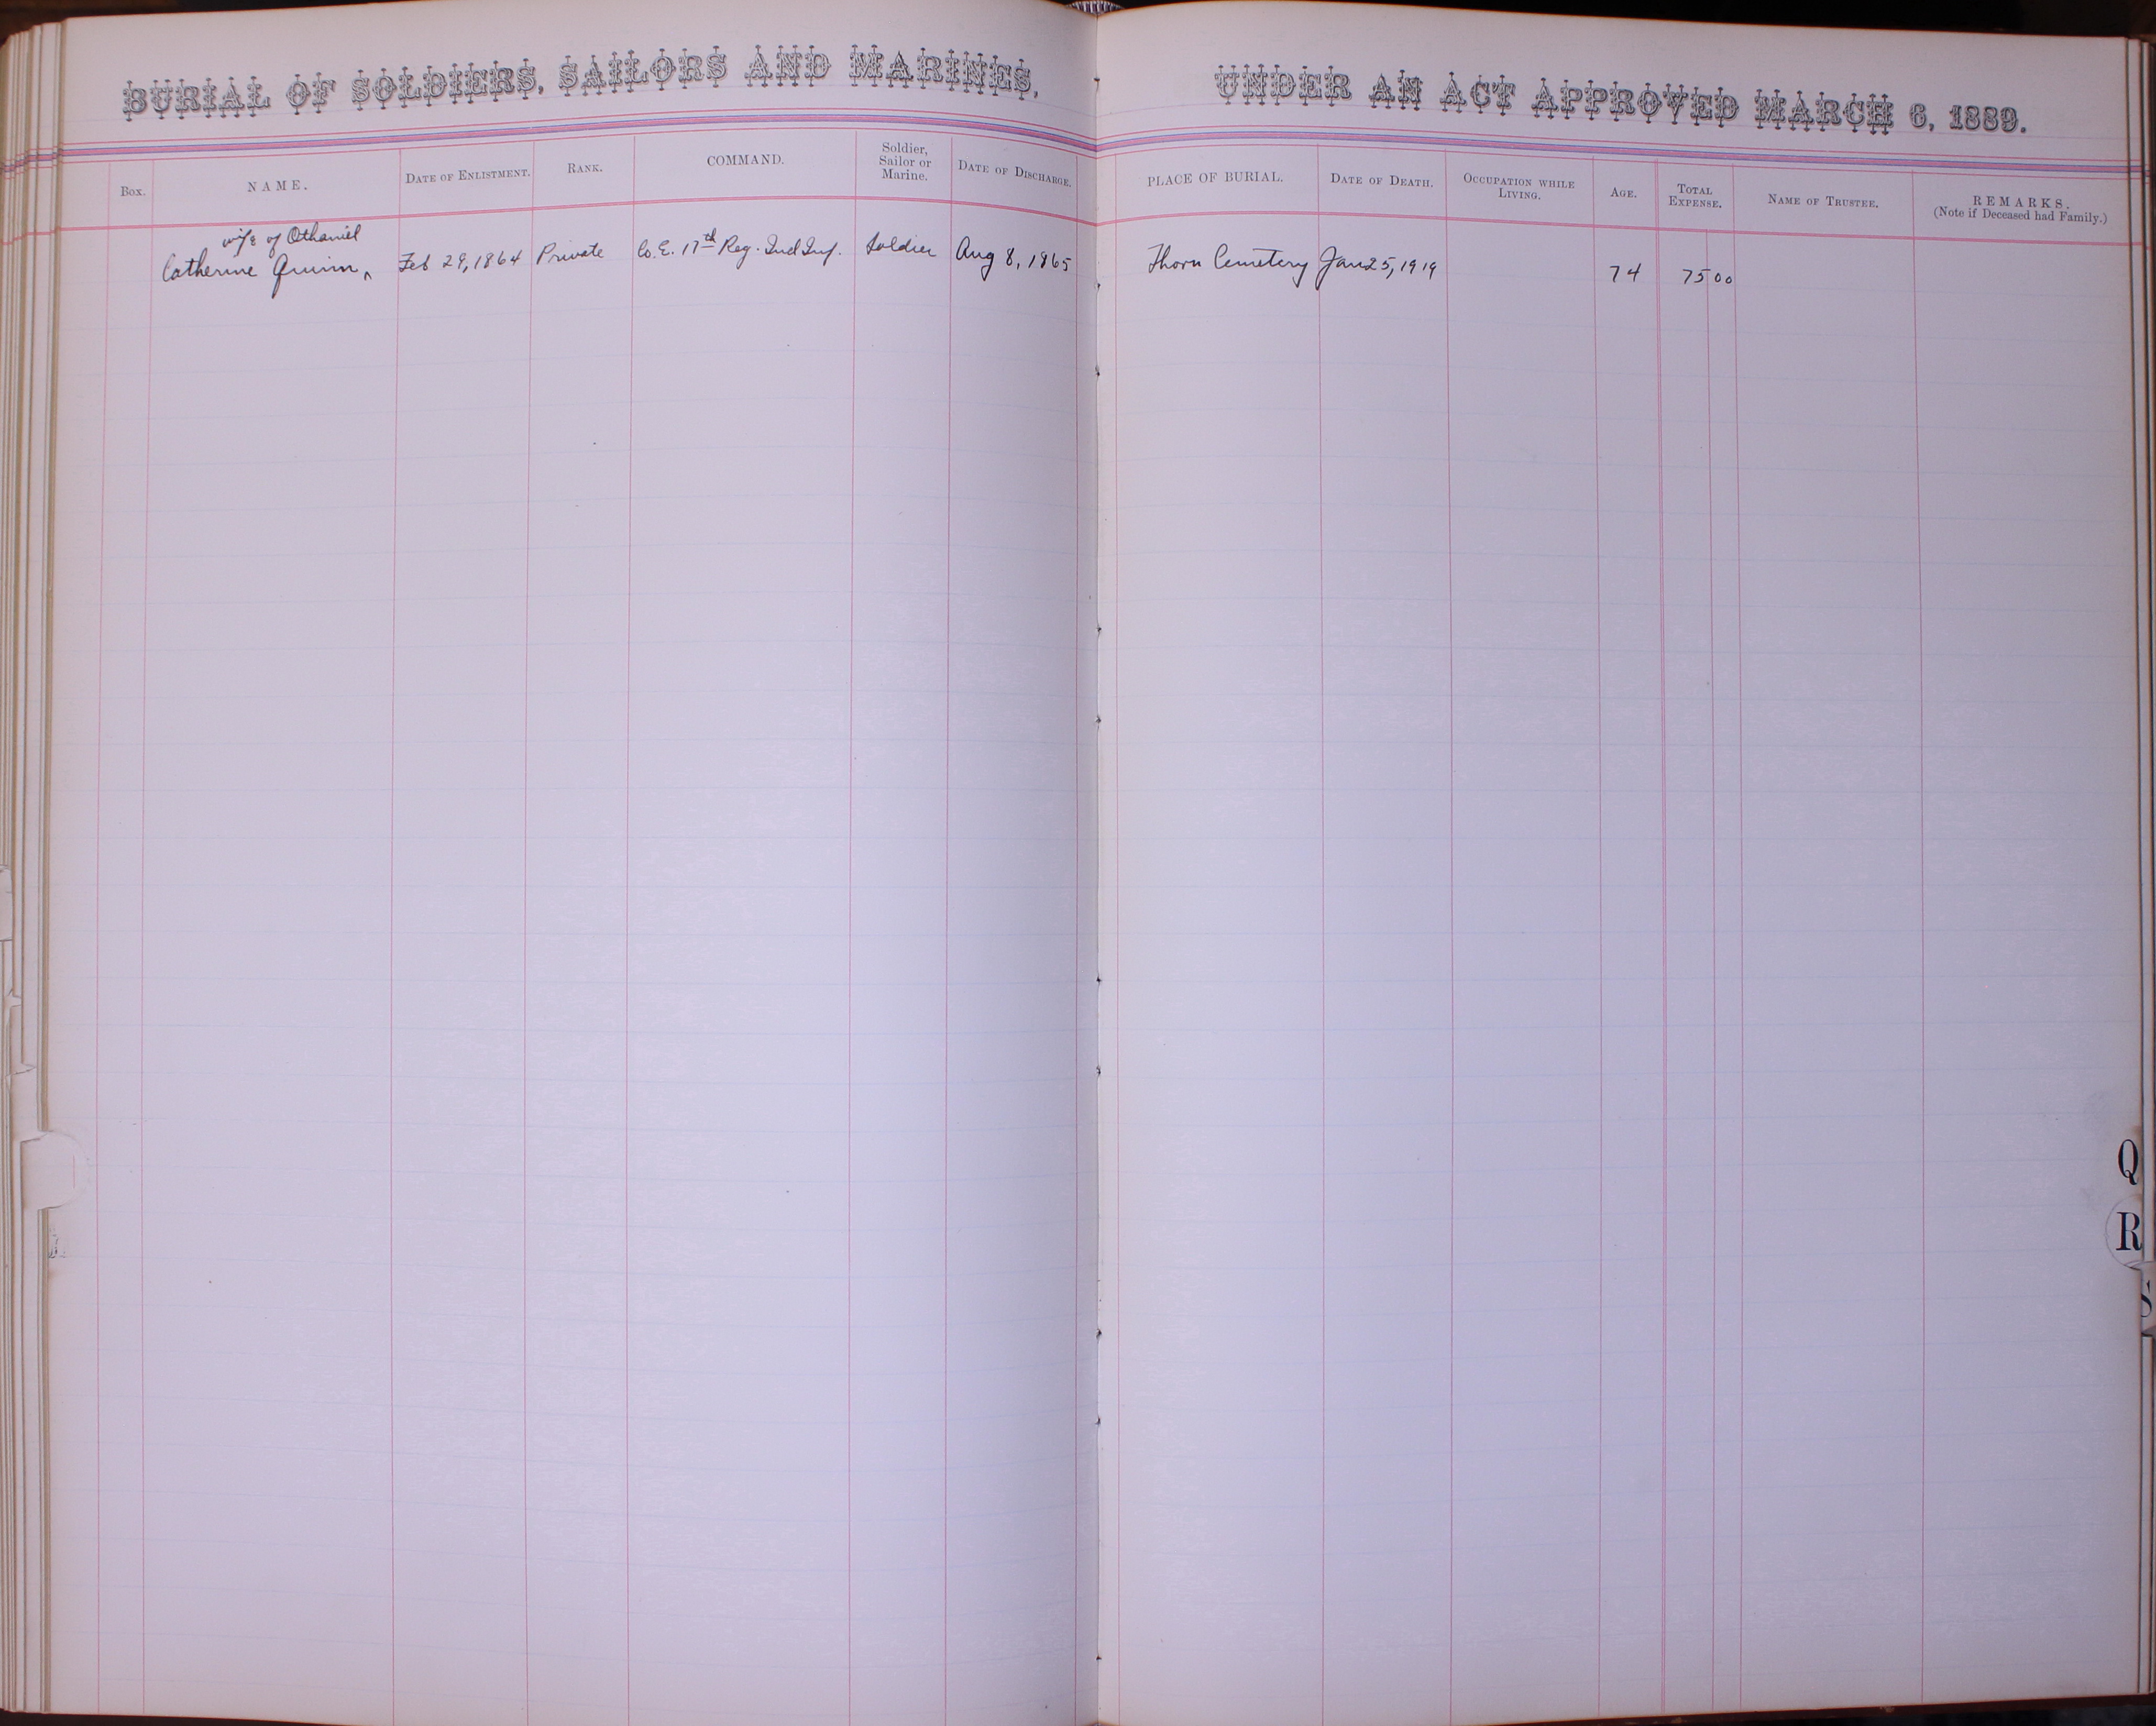 BURIAL OF SOLDIERS, SAILORS AND MARINES, UNDER AN ACT APPROVED MARCH 6, 1889.
Box. NAME. DATE OF ENLISTMENT. RANK. COMMAND. Soldier, Sailor or Marine. DATE OF DISCHARGE. PLACE OF BURIAL. DATE OF DEATH. OCCUPATION WHILE LIVING. AGE. TOTAL EXPENSE. NAME OF TRUSTEE. REMARKS. (Note if Deceased had Family.)
wife of Othaniel
Catherine Quinn, Feb 29, 1864 Private Co. E. 17th Reg. Ind Inf. Soldier Aug 8, 1865 Thorn Cemetery Jan 25, 1919 74 75 00
Q
R
S